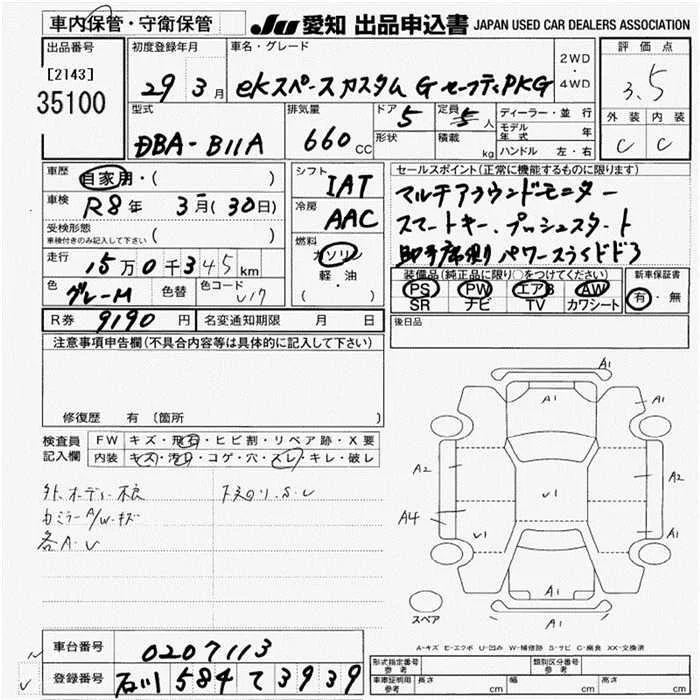 車内保管・守衛保管
JU 愛知 出品申込書 JAPAN USED CAR DEALERS ASSOCIATION
出品番号
[2143]
35100
初度登録年月
29 3月
車名・グレード
ekスペースカスタム G セーフティPKG
2WD
・
4WD
評価点
3.5
外装 内装
C C
型式
DBA-B11A
排気量
660 CC
ドア 5
形状
定員 5人
積載 kg
ディーラー・並行
モデル年式 年
ハンドル 左・右
車歴
自家用・( )
車検
R8年 3月(30日)
受検形態
車検付きのみ記入して下さい ( )
走行
15万0千345km
色 グレーM 色替 色コード U17
シフト
IAT
冷房
AAC
燃料
ガソリン
軽・油
( )
セールスポイント(正常に機能するものに限ります)
マルチアラウンドモニター
スマートキー、プッシュスタート
助手席側パワースライドドア
装備品(純正品に限り○をつけてください)
PS PW エアB AW
SR ナビ TV カワシート
新車保証
有・無
R券 9190円 名変通知期限 月 日
後日品
注意事項申告欄(不具合内容等は具体的に記入して下さい)
修復歴 有 (箇所 )
検査員記入欄
FW キズ・飛石・ヒビ割・リペア跡・X要
内装 キズ・汚れ・コゲ・穴・スレ・キレ・破レ
外、ボディー不良
下廻り、S、U
ミラーA/W・キズ
各A・U
A1
A1
A1
A2
A2
A4
U1
U1
A1
A1
A1
スペア
A-キズ E-エクボ U-凹み W-補修跡 S-サビ C-腐食 XX-交換済
車台番号 0207113
登録番号 石川 584 て 3939
形式指定番号 参考
類別区分番号 参考
車庫証明用 参考 長さ cm 幅 cm 高さ cm